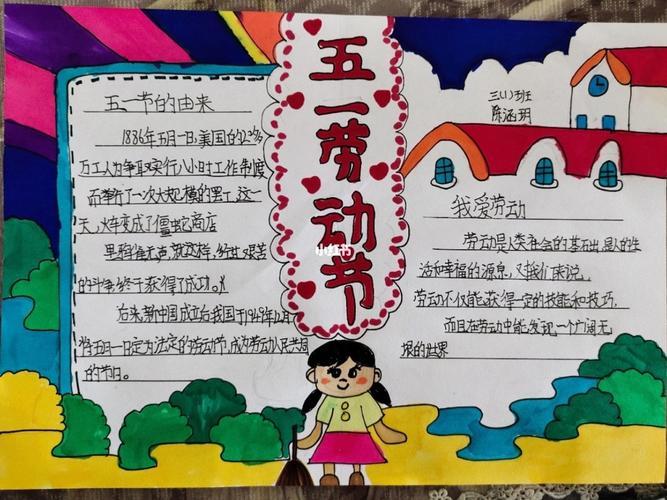 五一劳动节
小红书
五一节的由来
1886年五月一日，美国的2
万工人为争取实行八小时工作制度
而举行了一次大规模的罢工，这一
天，火车变成了僵蛇商店
里鸦雀无声，就这样，经过艰苦
的斗争，终于获得了成功。
后来，新中国成立台我国于1949年12月
将五月一日定为法定的劳动节，成为劳动人民共同
的节日。
三(1)班
陈涵玥
我爱劳动
劳动是人类社会的基石出，是人的生
活和幸福的源息，又我们来说，
劳动不仅能获得一定的技能和技巧，
而且在劳动中能发现一个广阔无
垠的世界